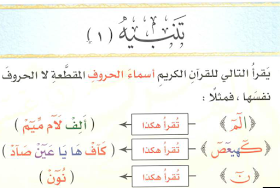 تَنبِيهٌ (١)
يَقرأُ التالي للقرآنِ الكريمِ أسماءَ الحروفِ المقطَّعةِ لا الحروفَ
نفسَها ، فمثلًا :
﴿ الٓمٓ ﴾ تُقرأ هكذا ( أَلِفْ لَآم مِّيٓمْ )
﴿ كٓهيعٓصٓ ﴾ تُقرأ هكذا ( كَآفْ هَا يَا عَيْٓنْ صَآدْ )
﴿ نٓ ﴾ تُقرأ هكذا ( نُوٓنْ )